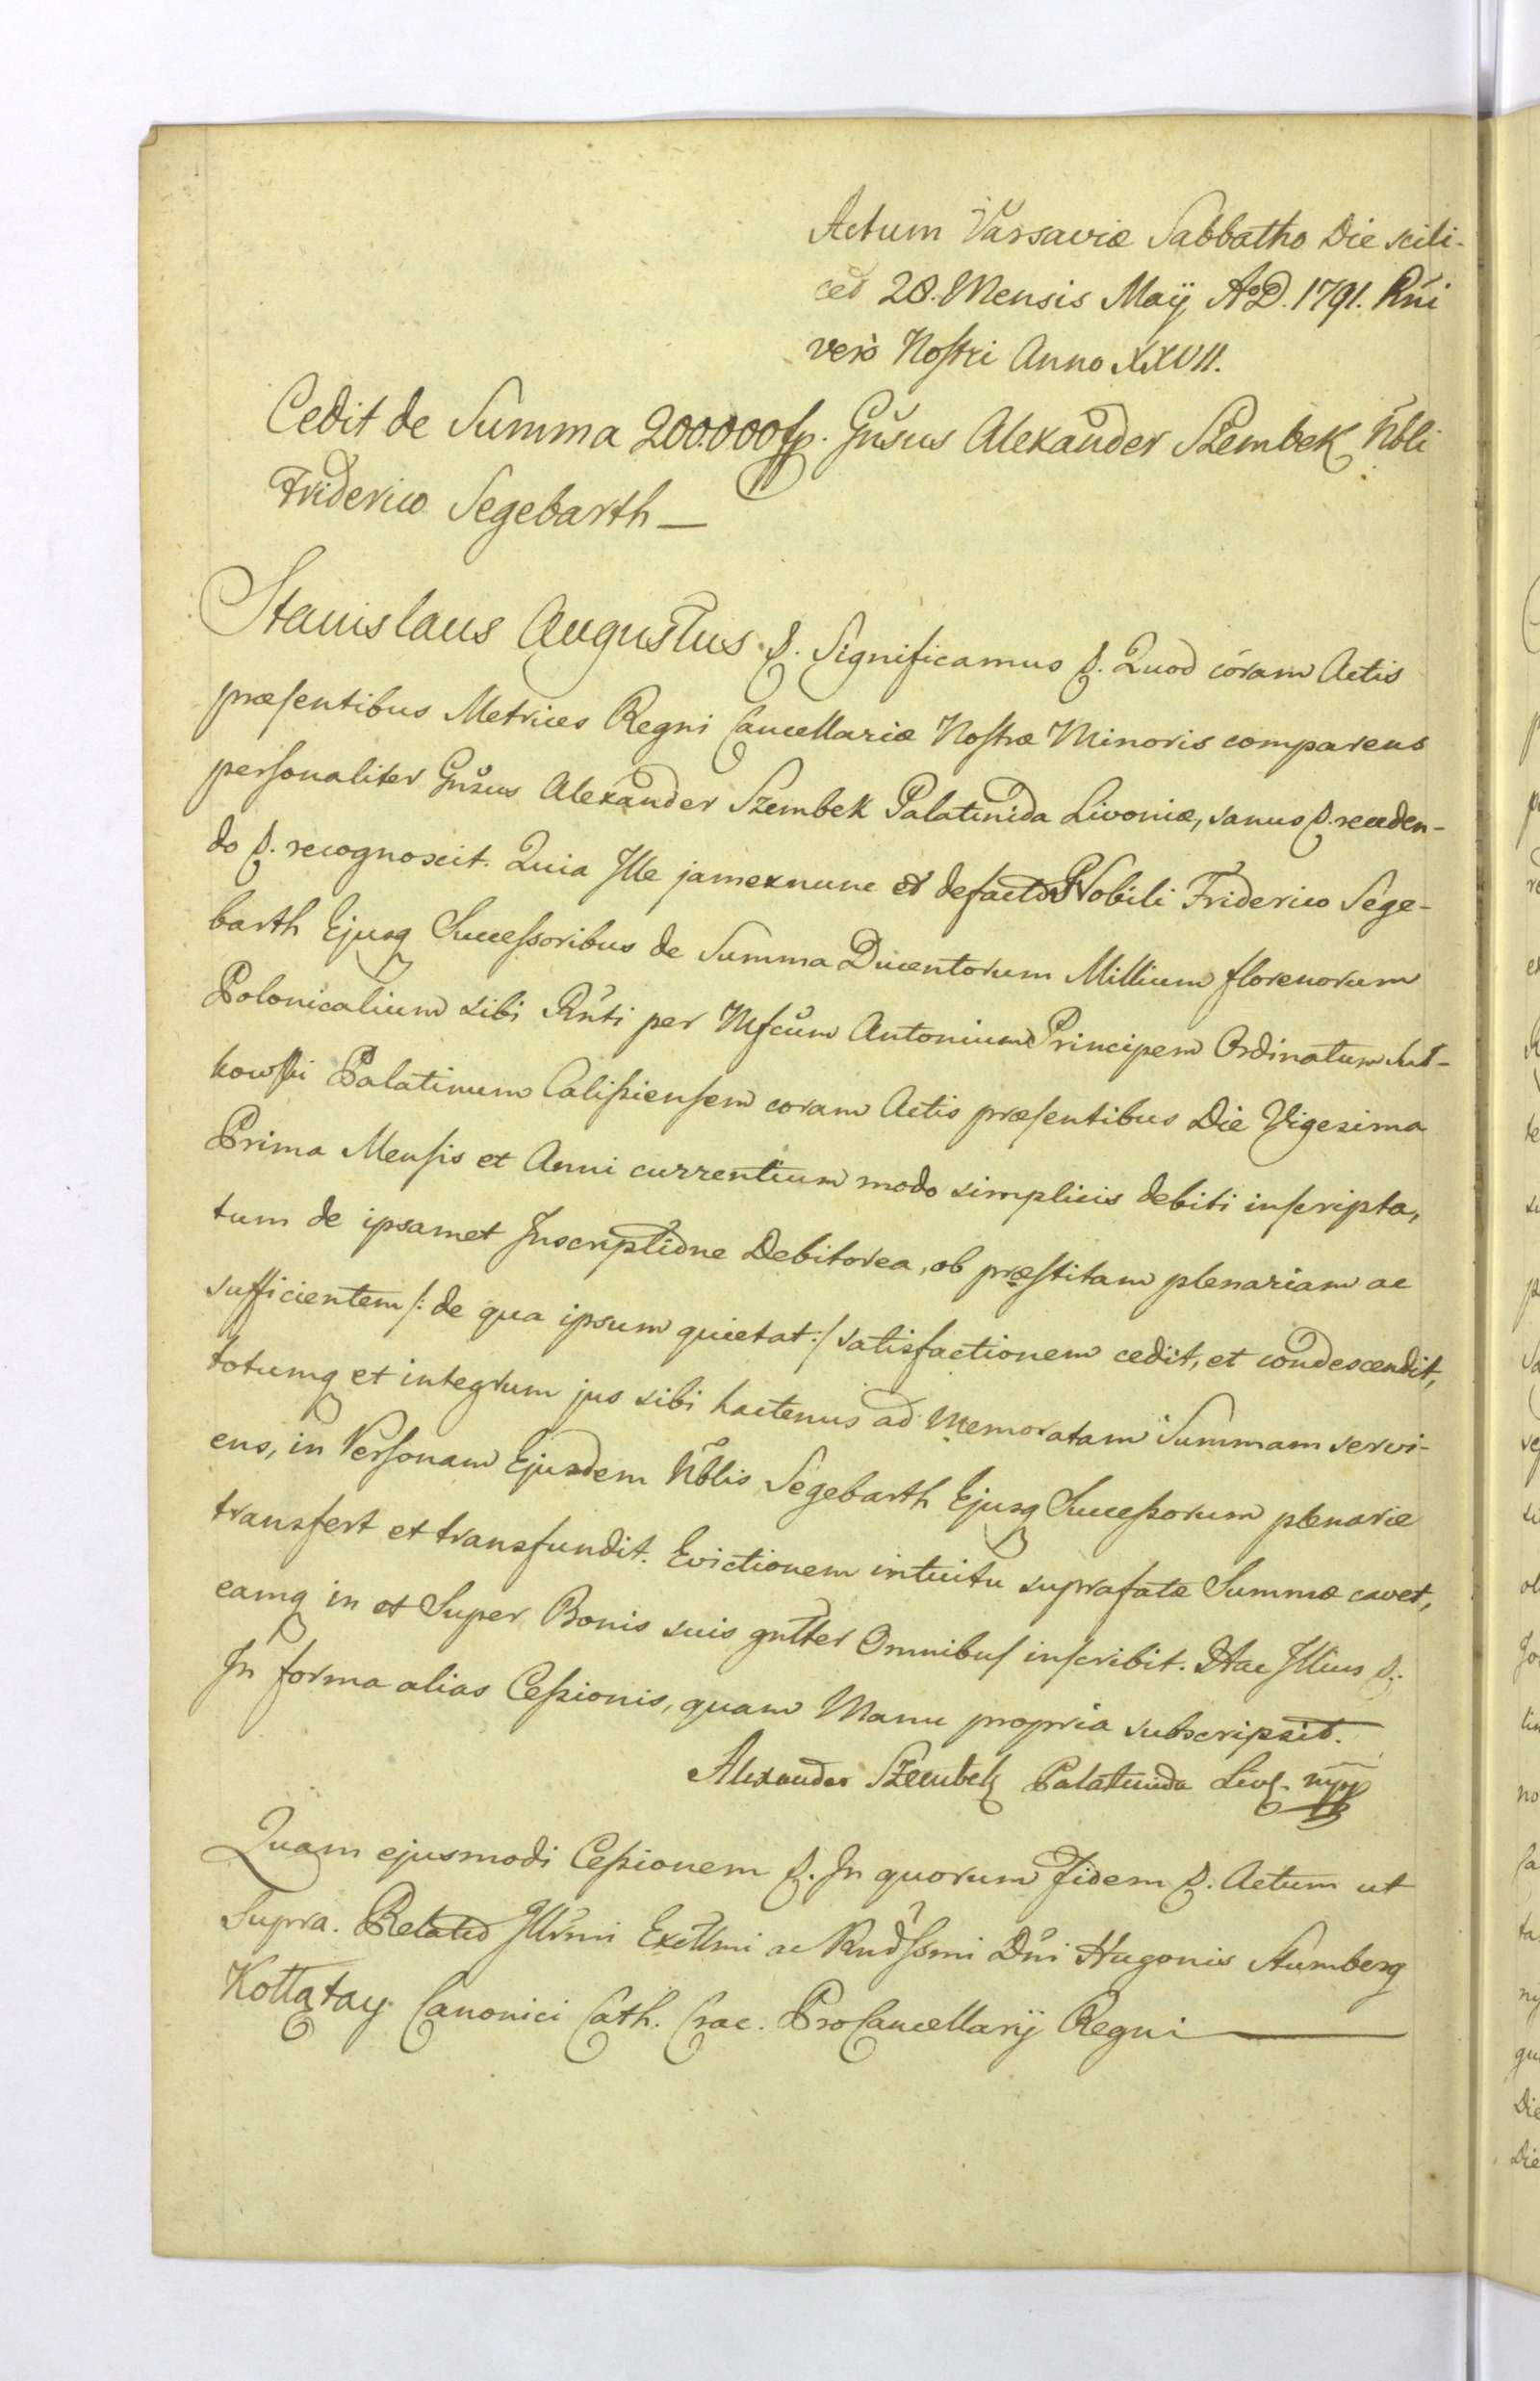 Actum Varsaviæ Sabbatho Die scili-
cet 28. Mensis Maÿ AoD. 1791. Rñi
verò Nostri Anno XXVII.
Cedit de Summa 200.000 fp. Gñsus Alexander Szembek Nbli
Friderico Segebarth —
Stanislaus Augustus &. Significamus &. Quod coram Actis
præsentibus Metrices Regni Cancellariæ Nostræ Minoris comparens
personaliter Gñsus Alexander Szembek Palatinida Livoniæ, sanus &. receden-
do &. recognoscit. Quia Ille jamexnunc et defacto Nobili Friderico Sege-
barth Ejusq Successoribus de Summa Ducentorum Millium florenorum
Polonicalium sibi Rñti per Mfcum Antonium Principem Ordinatum Sul-
kowski Palatinum Calissiensem coram Actis præsentibus Die Vigesima
Prima Mensis et Anni currentium modo simplicis debiti inscripta,
tum de ipsamet Inscriptione Debitorea, ob præstitam plenariam ac
sufficientem /: de qua ipsum quietat :/ satisfactionem cedit, et condescendit,
totumq et integrum jus sibi hactenus ad Memoratam Summam servi-
ens, in Personam Ejusdem Nblis Segebarth Ejusq Successorum plenarie
transfert et transfundit. Evictionem intuitu suprafatæ Summæ cavet,
eamq in et Super Bonis suis gnlter Omnibus inscribit. Hac Illius &.
In forma alias Cessionis, quam Manu propria subscripsit.
Alexander Szembek Palatinida Livs. mpp
Quam ejusmodi Cessionem &. In quorum Fidem &. Actum ut
Supra. Relatio Illrmi Excllmi ac Rndssmi Dñi Hugonis Stumberg
Kołłątay Canonici Cath. Crac. ProCancellarÿ Regni —